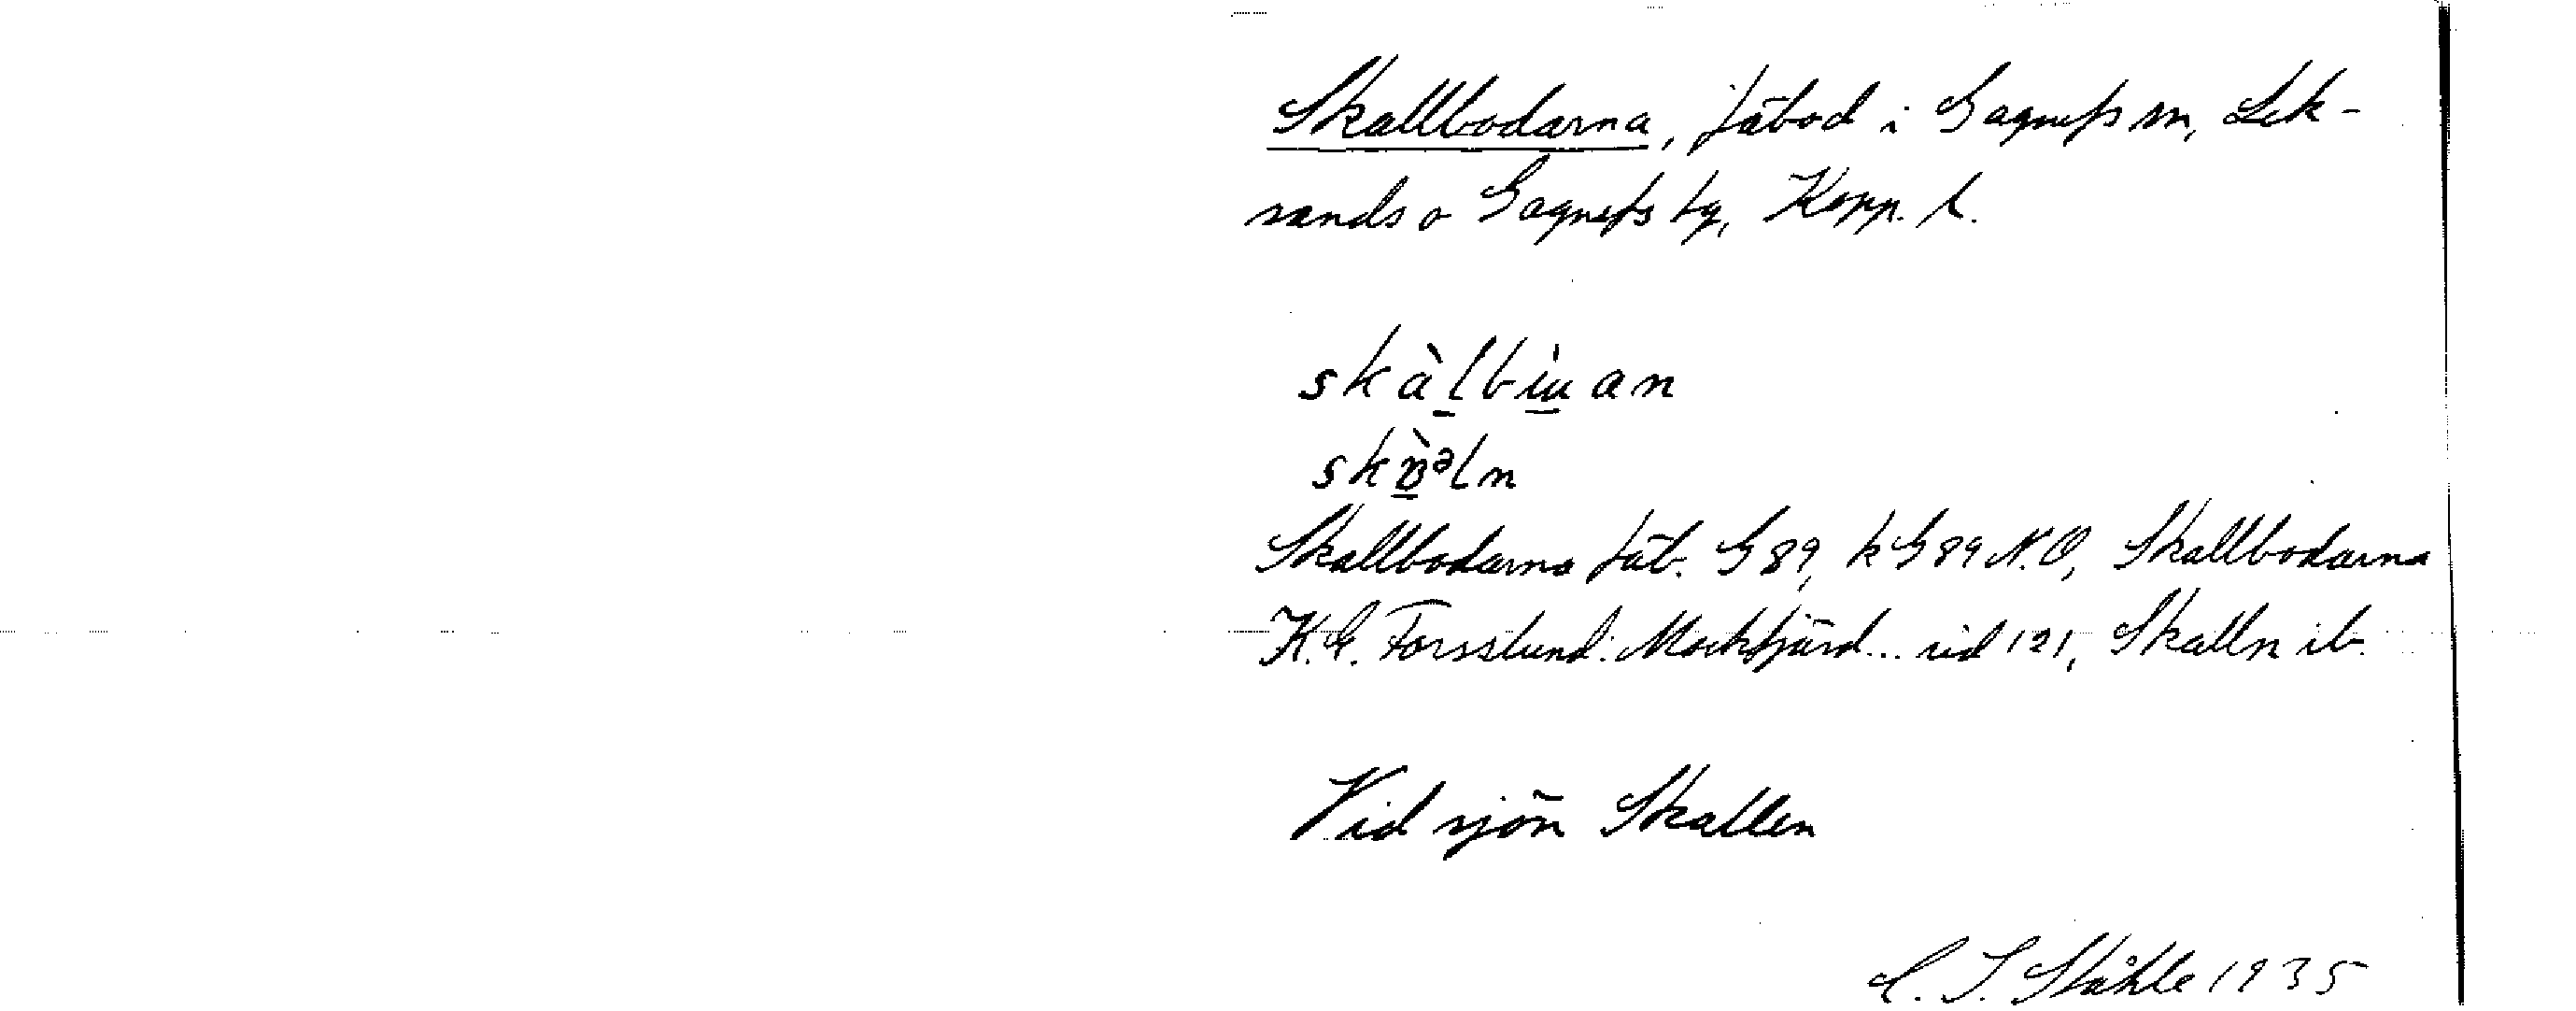 Skallbodarna, fäbod i Gagnefs sn, Lek-
sands o Gagnefs tg, Kopp. l.
skàlbùan
Skallbodarna fäb. G 89, k G 89 N.O, Skallbodarna
K.E. Forsslund: Mockfjärd... sid 121, Skalln ib.
Vid sjön Skallen
C. I. Ståhle 1935